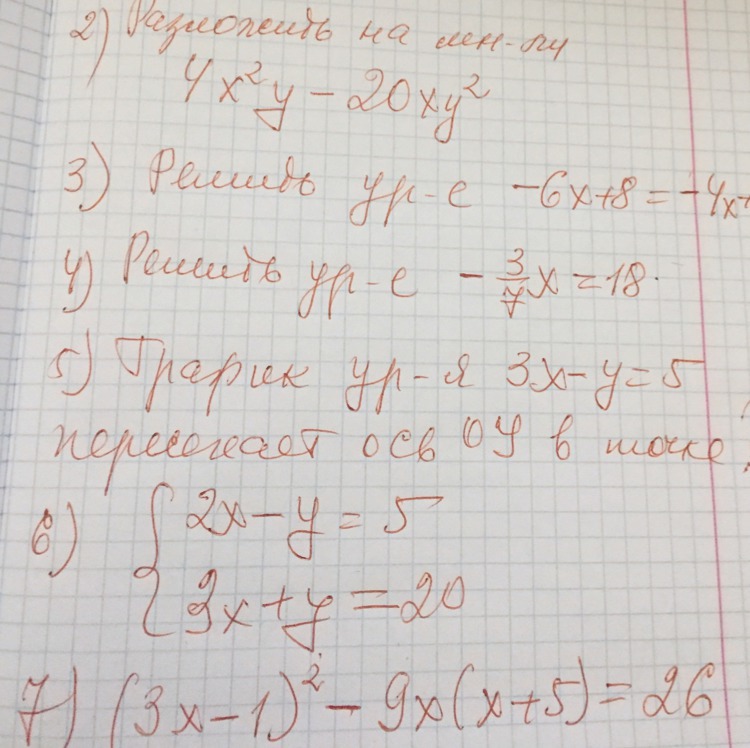 2) Разложить на мн-ли
4x²y – 20xy²
3) Решить ур-е -6x+8=-4x+
4) Решить ур-е -3/7x=18.
5) График ур-я 3x-y=5
пересекает ось OY в точке?
6) { 2x-y=5
3x+y=20
7) (3x-1)²-9x(x+5)=26